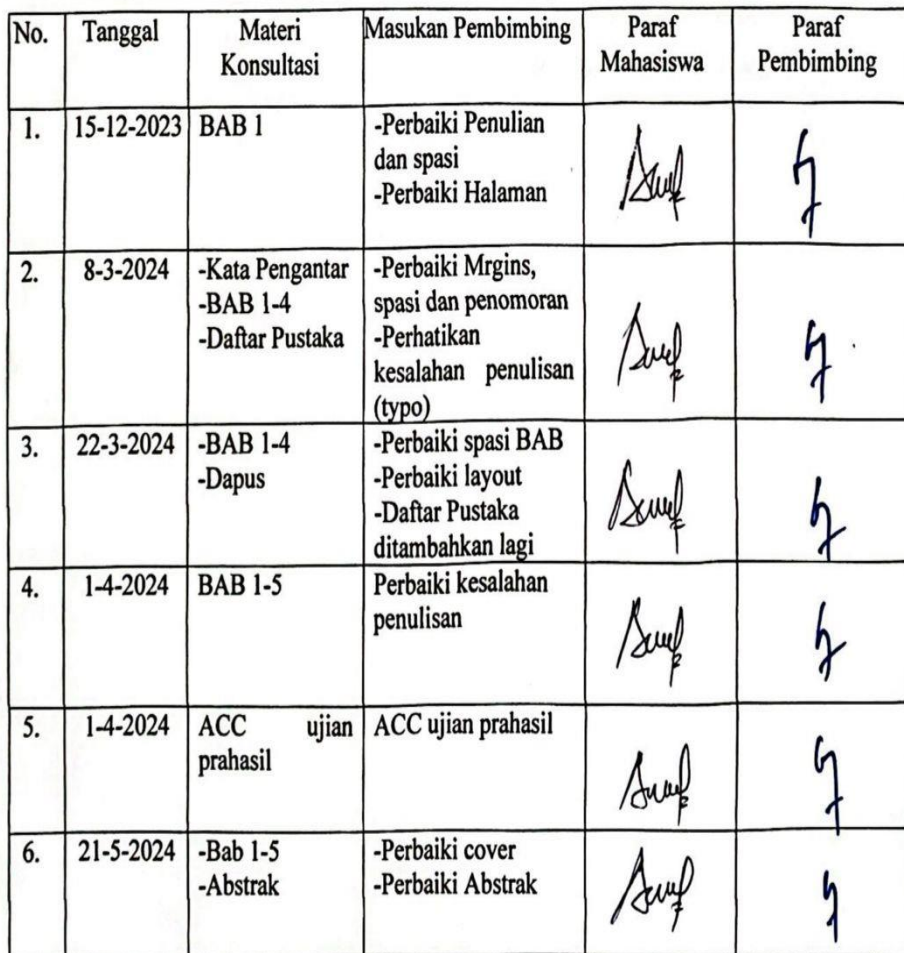 No. Tanggal Materi Konsultasi Masukan Pembimbing Paraf Mahasiswa Paraf Pembimbing
1. 15-12-2023 BAB 1 -Perbaiki Penulian
dan spasi
-Perbaiki Halaman
2. 8-3-2024 -Kata Pengantar -Perbaiki Mrgins,
-BAB 1-4 spasi dan penomoran
-Daftar Pustaka -Perhatikan
kesalahan penulisan
(typo)
3. 22-3-2024 -BAB 1-4 -Perbaiki spasi BAB
-Dapus -Perbaiki layout
-Daftar Pustaka
ditambahkan lagi
4. 1-4-2024 BAB 1-5 Perbaiki kesalahan
penulisan
5. 1-4-2024 ACC ujian ACC ujian prahasil
prahasil
6. 21-5-2024 -Bab 1-5 -Perbaiki cover
-Abstrak -Perbaiki Abstrak